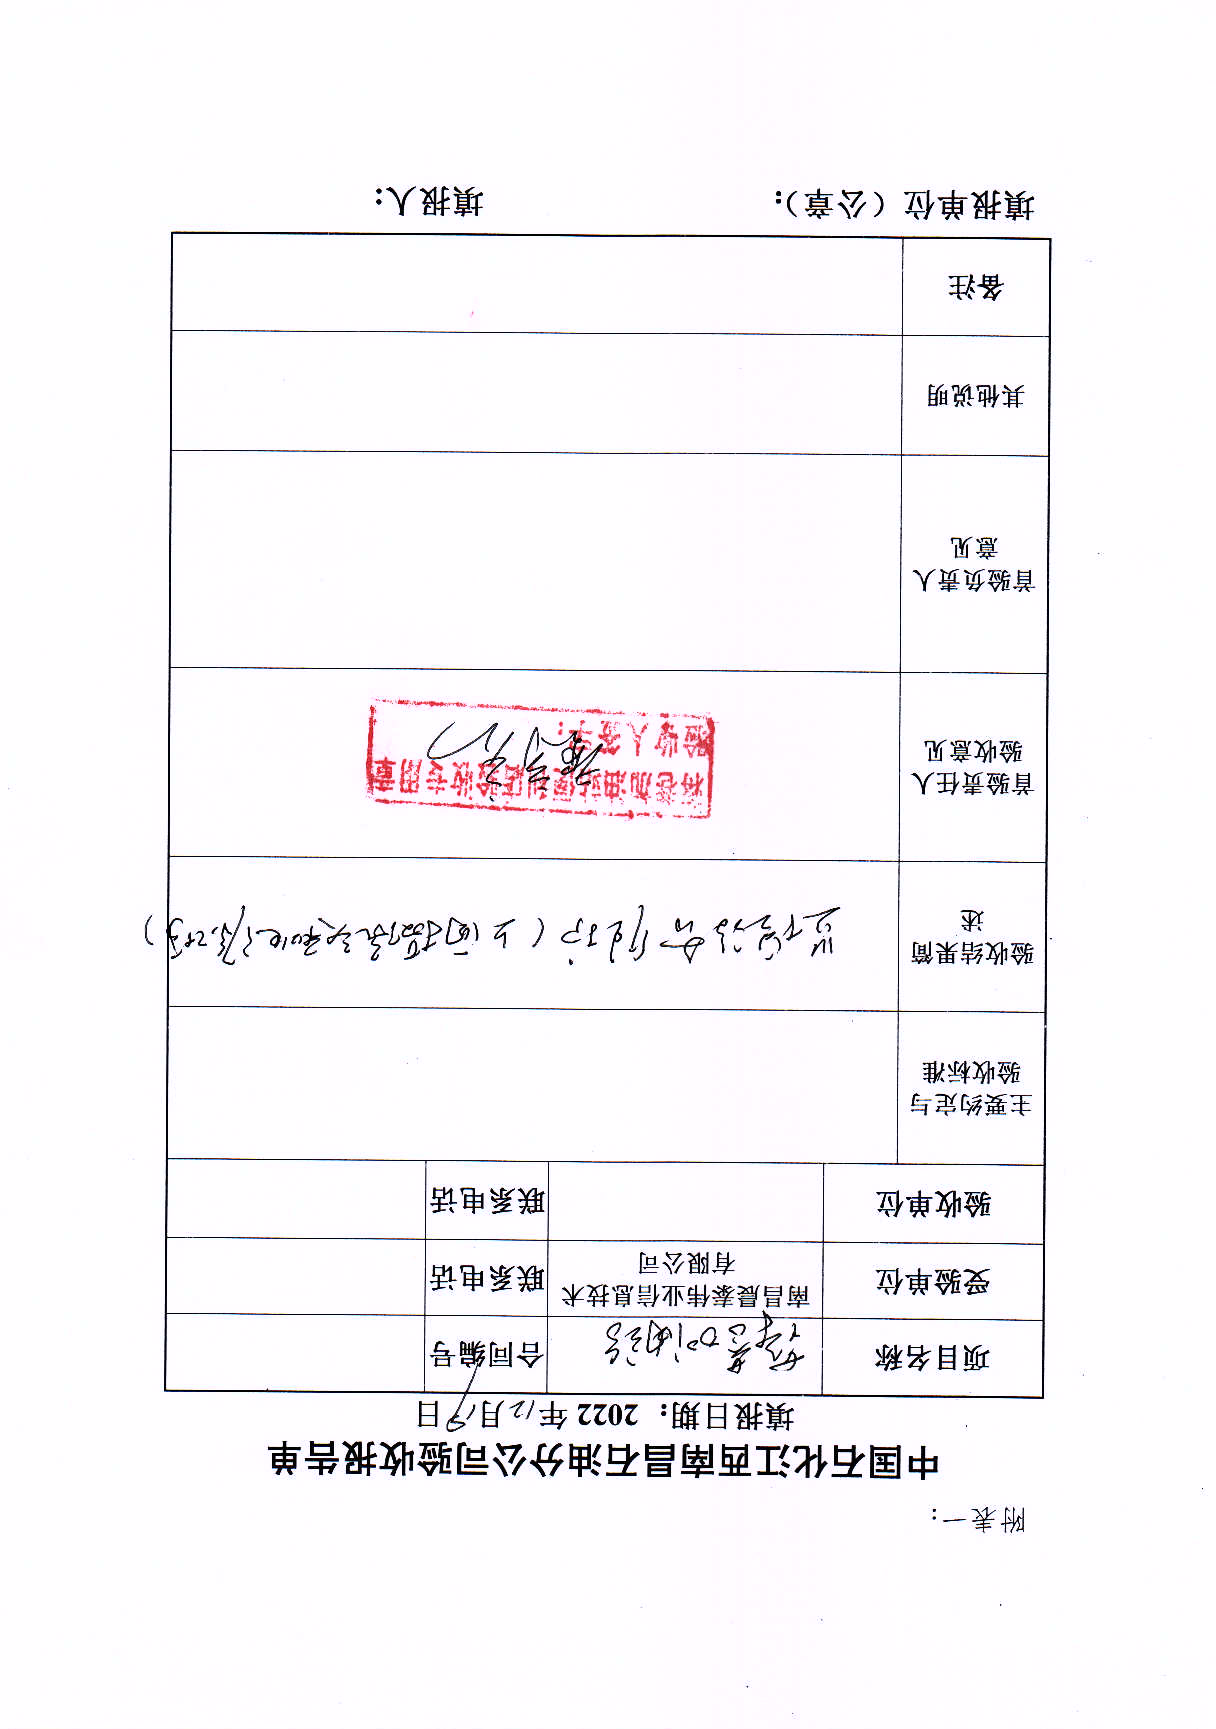 附表一：
中国石化江西南昌石油分公司验收报告单
填报日期：2022年12月19日
项目名称
合同编号
受验单位
南昌晨泰伟业信息技术
有限公司
联系电话
验收单位
联系电话
主要约定与
验收标准
验收结果简
述
首验责任人
验收意见
加油站便利店验收专用章
验收人签字：
首验负责人
意见
其他说明
备注
填报单位（公章）：
填报人：